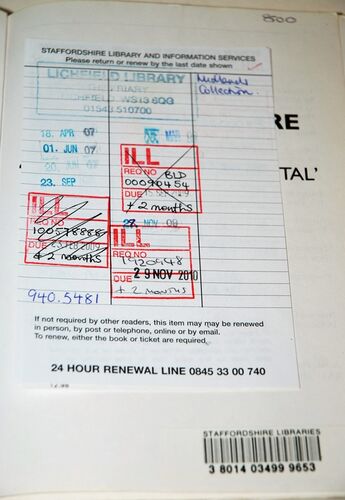 800
STAFFORDSHIRE LIBRARY AND INFORMATION SERVICES
Please return or renew by the last date shown
LICHFIELD LIBRARY
THE FRIARY
LICHFIELD WS13 6QG
01543 510700
Midlands
Collection.
RE
18. APR 07
01. JUN 07
20. JUN 07
23. SEP
ILL
REQ NO BLD
00090454
DUE 15 SEP
+ 2 months
TAL'
ILL
REQ NO
100578888
DUE 23 FEB 2009
+ 2 months
NOV 08
ILL
REQ NO
1420948
DUE 29 NOV 2010
+ 2 MONTHS
940.5481
If not required by other readers, this item may may be renewed
in person, by post or telephone, online or by email.
To renew, either the book or ticket are required.
24 HOUR RENEWAL LINE 0845 33 00 740
12.99
STAFFORDSHIRE LIBRARIES
3 8014 03499 9653